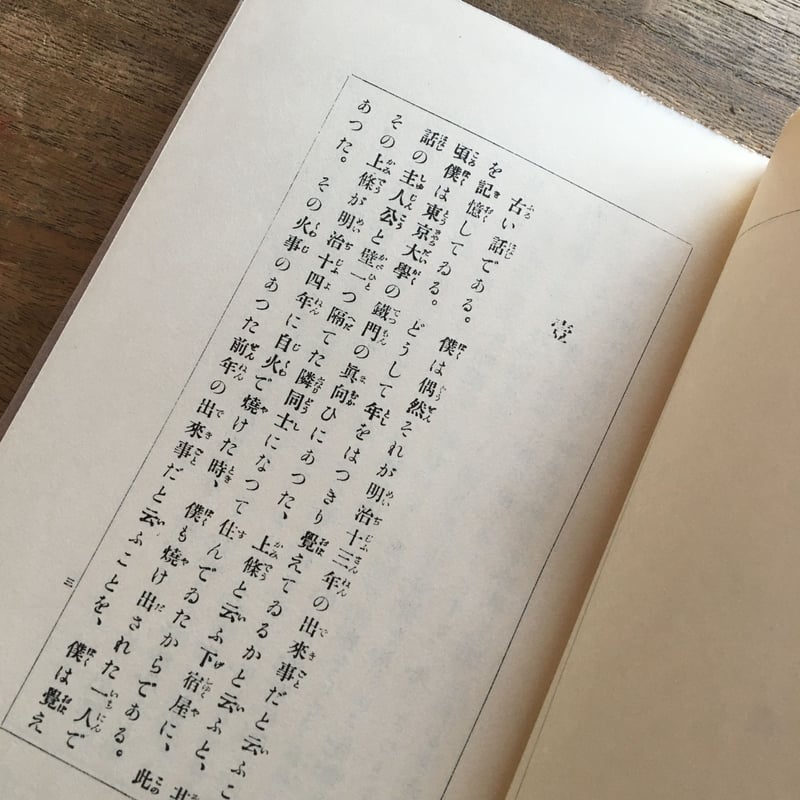 壹
古い話である。僕は偶然それが明治十三年の出來事だと云ふこ
を記憶してゐる。どうして年をはつきり覺えてゐるかと云ふと、其
頃僕は東京大學の鐵門の眞向ひにあつた、上條と云ふ下宿屋に、此
話の主人公と壁一つ隔てた隣同士になつて住んでゐたからである。
その上條が明治十四年に自火で燒けた時、僕も燒け出された一人で
あつた。その火事のあつた前年の出來事だと云ふことを、僕は覺え
三